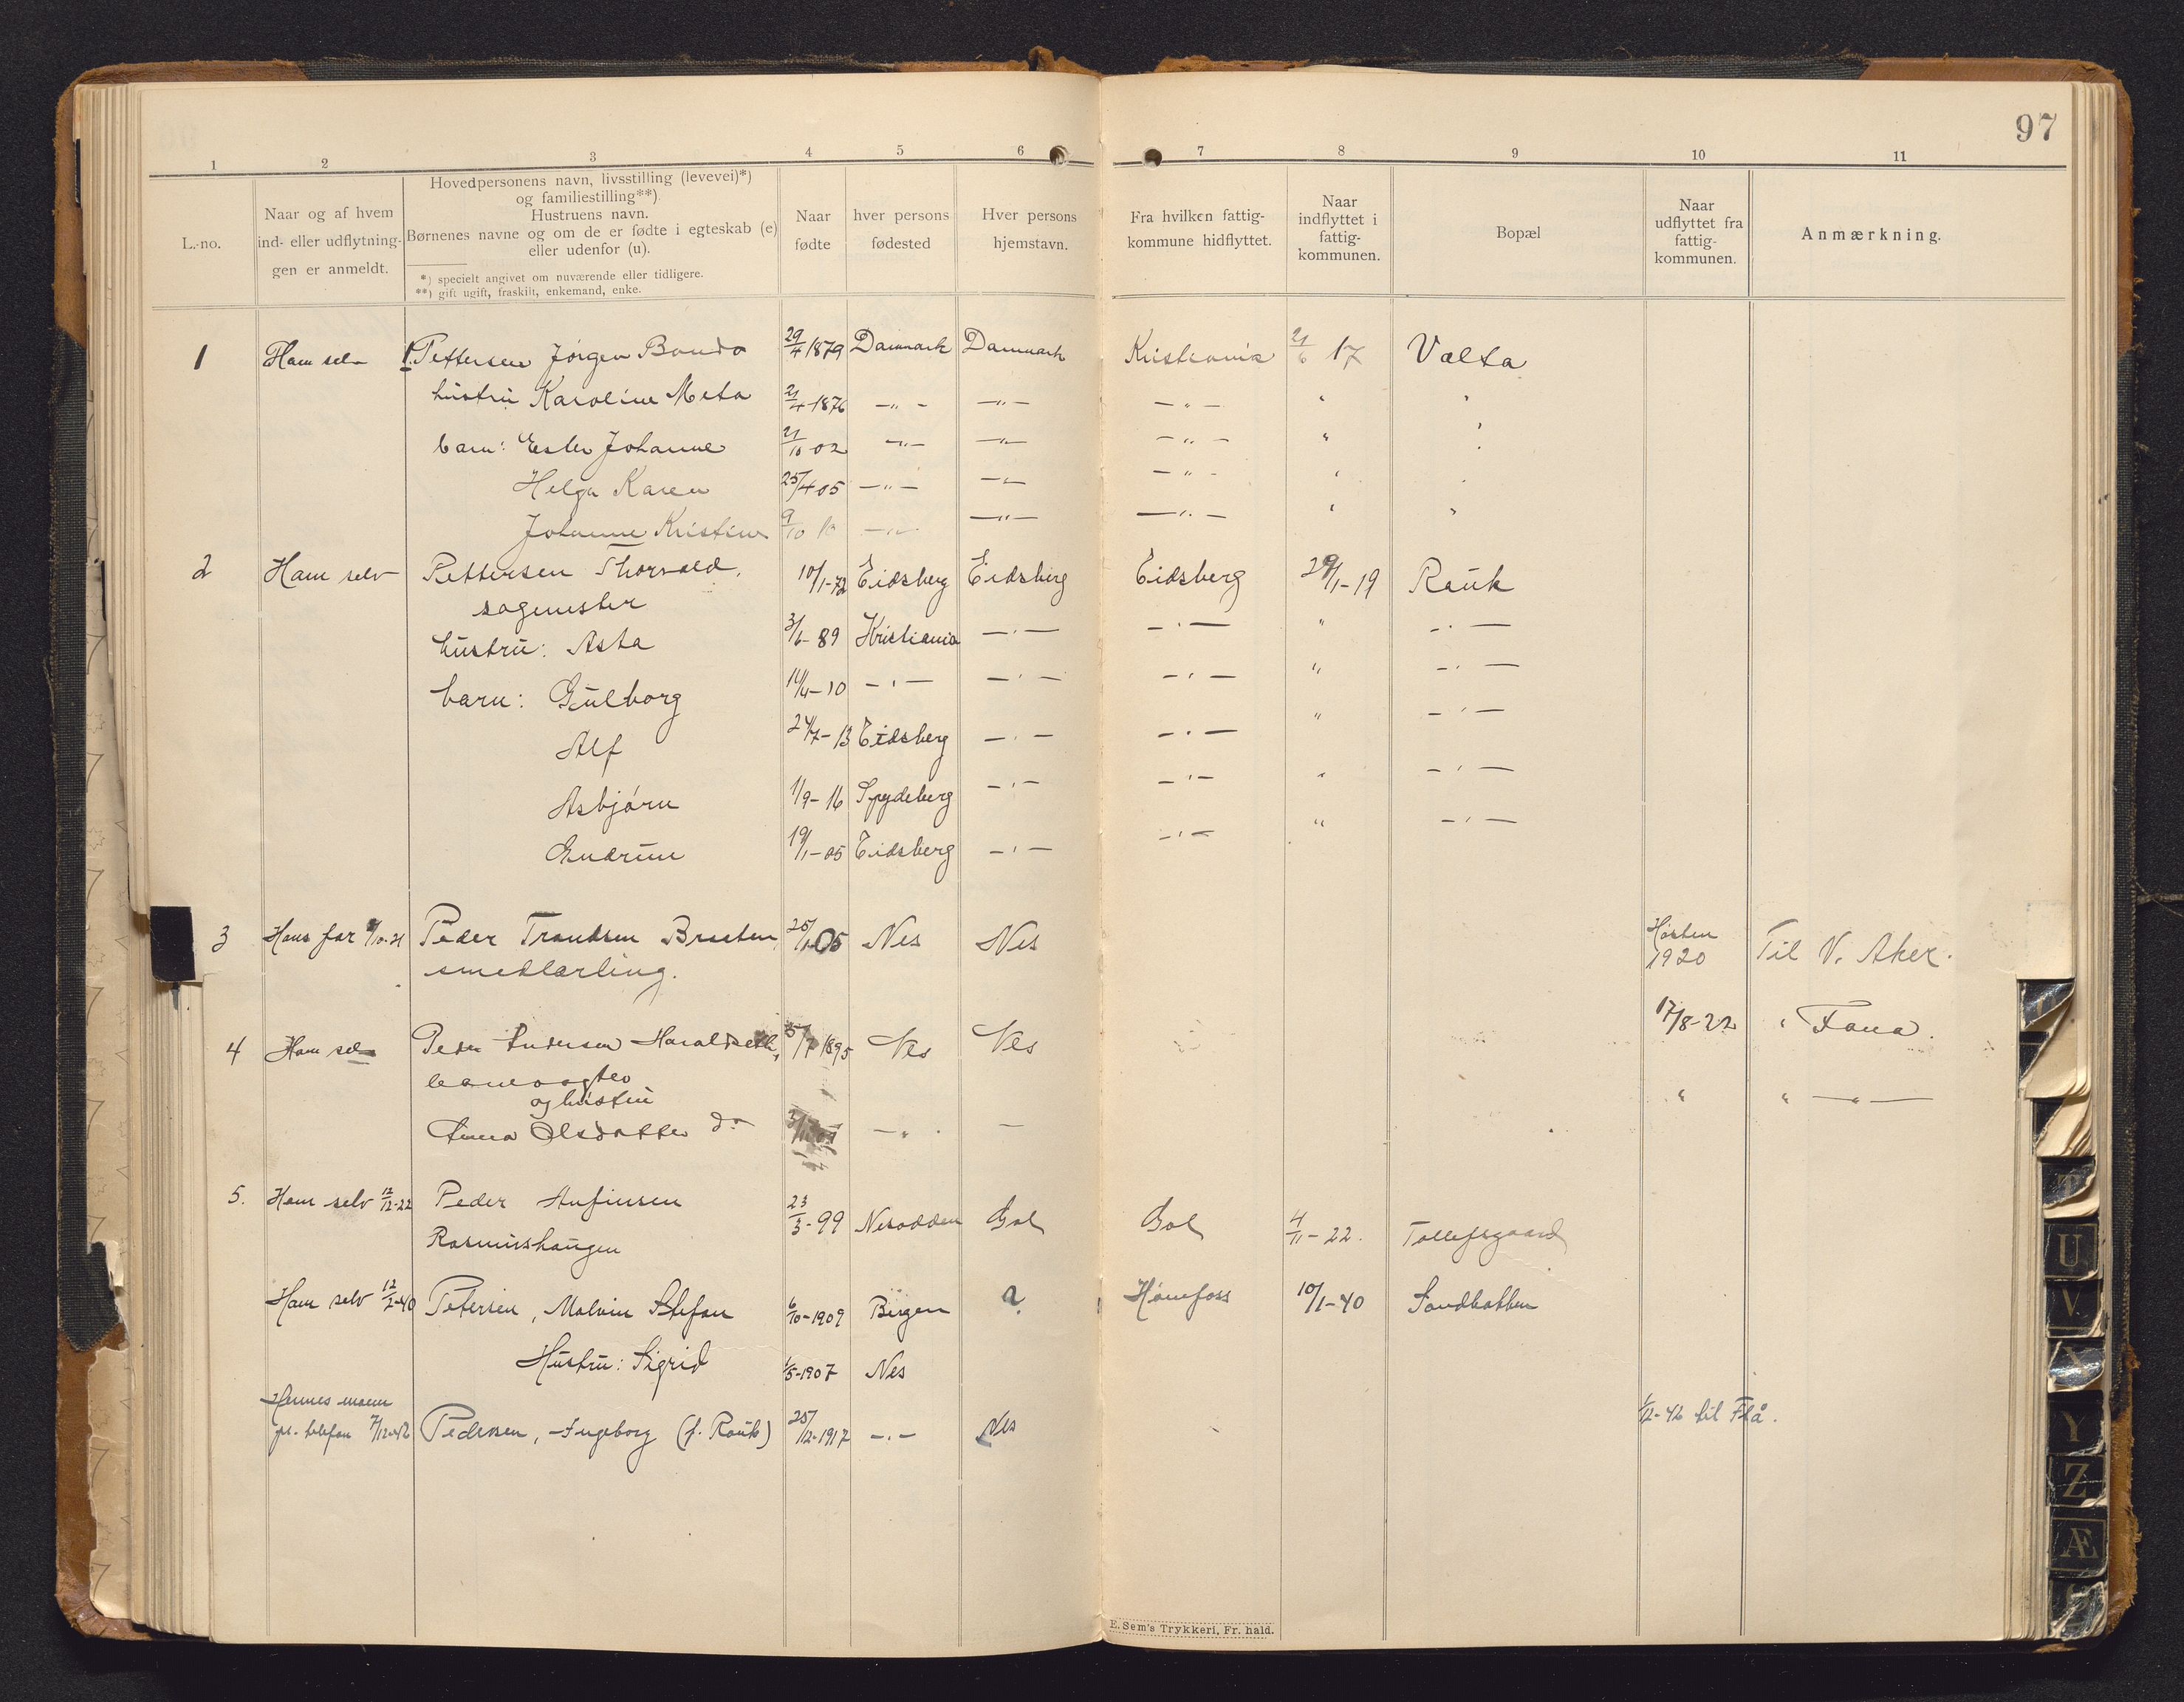 97
1 2 3 4 5 6 7 8 9 10 11
L.-no.
Naar og af hvem
ind- eller udflytnin-
gen er anmeldt.
Hovedpersonens navn, livsstilling (levevei)*)
og familiestilling**)
Hustruens navn.
Børnenes navne og om de er fødte i egteskab (e)
eller udenfor (u).
*) specielt angivet om nuværende eller tidligere.
**) gift ugift, fraskilt, enkemand, enke.
Naar
fødte
hver persons
fødested
Hver persons
hjemstavn.
Fra hvilken fattig-
kommune hidflyttet.
Naar
indflyttet i
fattig-
kommunen.
Bopæl
Naar
udflyttet fra
fattig-
kommunen.
Anmærkning.
1 Ham selv Pettersen Jörgen 29/4 1879 Danmark Danmark Kristiania 21/6 17 Valta
hustru Karoline Meta 21/4-1876 —"— —"— —"— " "
barn: Ester Johanne 21/10 02 —"— —"— —"— " "
Helga Karen 25/4 05 —"— —"— —"— " "
Johanne Kristine 9/10 10 —"— —"— —"— " "
2 Ham selv Pettersen Thorvald, 10/1-72 Eidsberg Eidsberg Eidsberg 29/1-19 Rauk
sagmester
hustru: Asta 3/6-89 Kristiania —"— —"— " —"—
barn: Gulborg 14/4-10 —"— —"— —"— " —"—
Alf 24/7-13 Eidsberg —"— —"— " —"—
Asbjörn 1/9-16 Spydeberg —"— —"— " —"—
Gudrun 19/1-05 Eidsberg —"— —"— " —"—
3 Hans far /10-21 Peder Trondsen Braaten, 25/1-05 Nes Nes Høsten 1920 Til V. Aker.
smedlærling.
4 Ham selv Peder Andersen Haraldseth, /7 1895 Nes Nes 17/8-22 " Fana.
banevogter
og hustru
Anna Olsdatter do —"— — " " —"—
5. Ham selv 12/12-22 Peder Anfinsen 23/3-99 Nesodden Gol Gol 4/11-22. Tollefsgaard
Rasmushaugen
Ham selv 12/2-40 Petersen, Malvin Stefan 6/10-1909 Bergen ? Hönefoss 10/1-40 Sandbakken
Hustru: Sigrid 1/5-1907 Nes
Hennes mann
pr. telefon 7/12-42 Pedersen, Ingeborg (f. Rauk) 25/12-1917 —"— Nes 1/12-42 til Flå.
E. Sem's Trykkeri, Fr. hald.
U
V
X
Y
Z
Æ